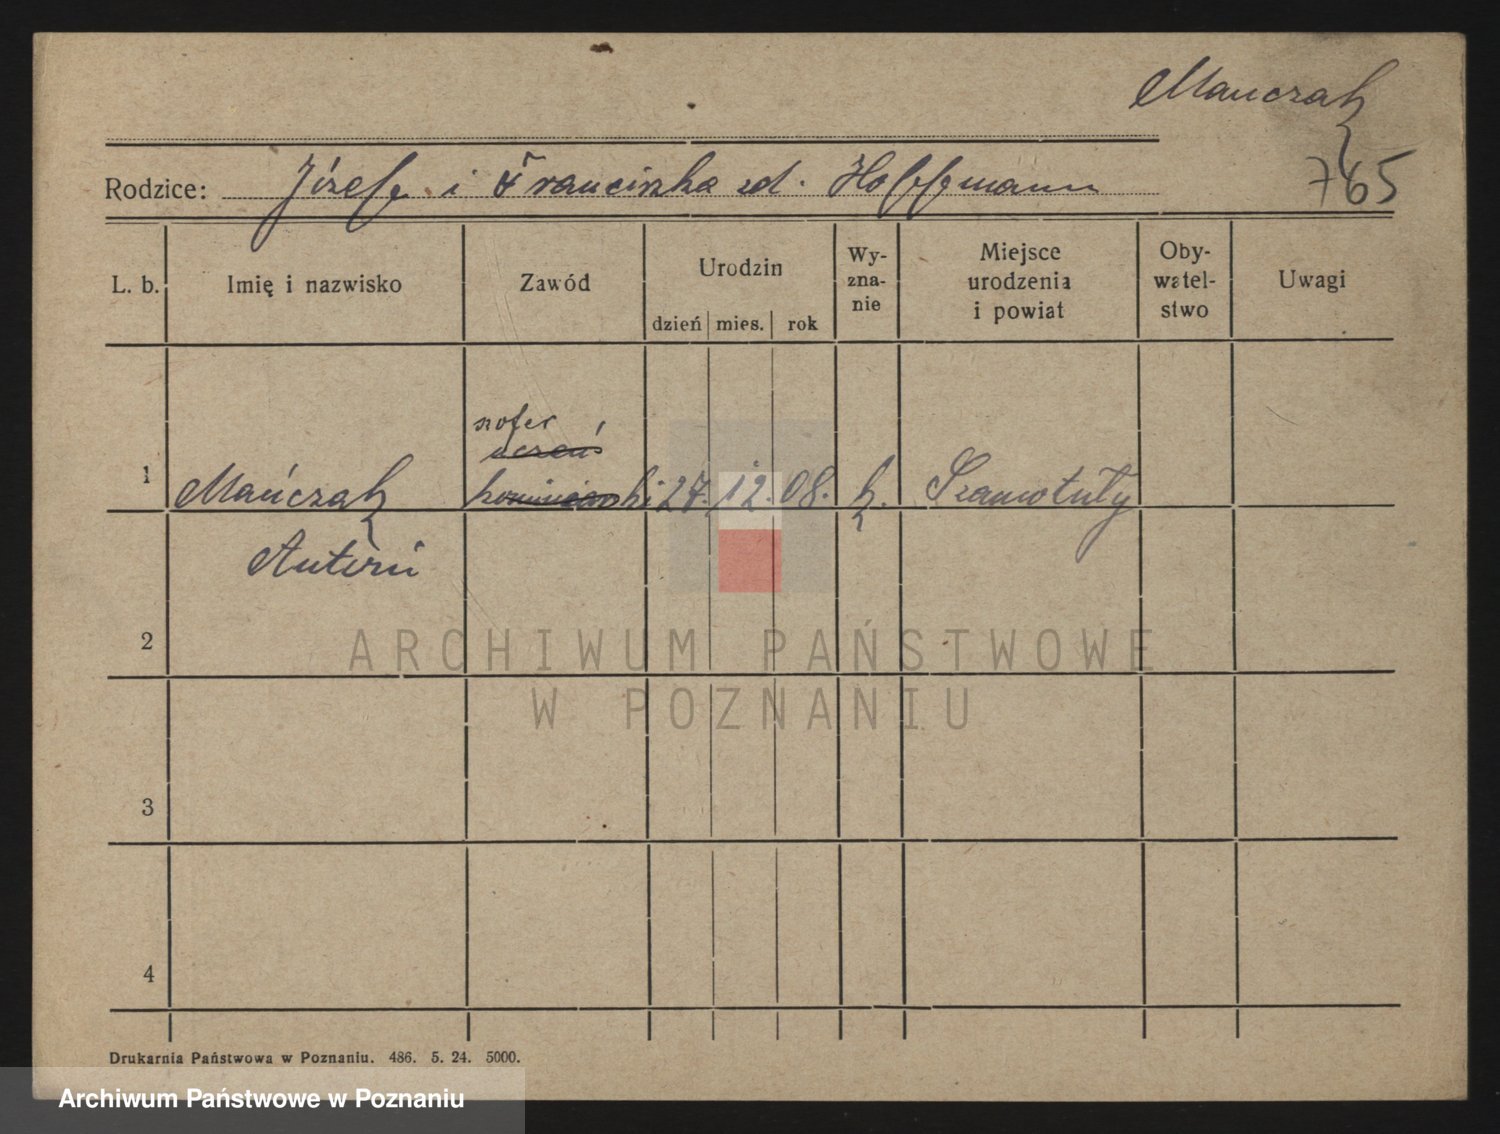 Mańczak
765
Rodzice: Józef i Franciszka zd. Hoffmann
L. b. Imię i nazwisko Zawód Urodzin Wy-zna-nie Miejsce urodzenia i powiat Oby-watel-stwo Uwagi
dzień mies. rok
szofer
uczeń
1 Mańczak kominiarski 27. 12. 08. k. Szamotuły
Antoni
2
3
4
ARCHIWUM PAŃSTWOWE
W POZNANIU
Drukarnia Państwowa w Poznaniu. 486. 5. 24. 5000.
Archiwum Państwowe w Poznaniu